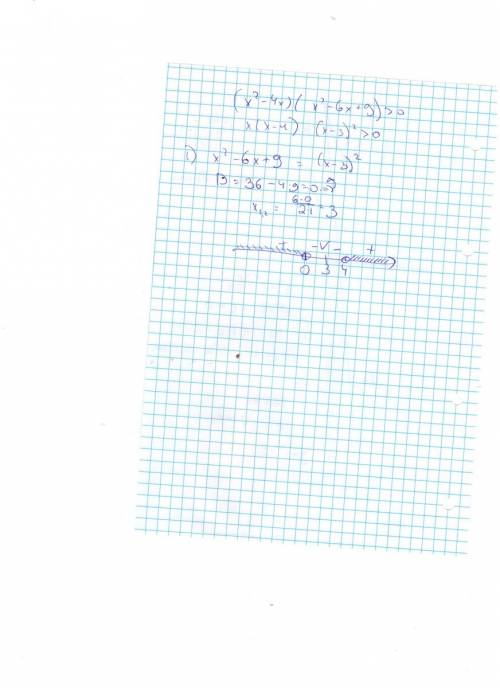 (x²-4x)(x²-6x+9)>0
x(x-4) (x-3)²>0
1) x²-6x+9 = (x-3)²
D = 36-4·9=0
x₁,₂ = 6·0/2·1 = 3
+ -V- +
0 3 4